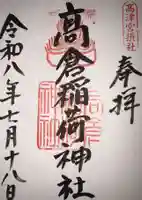 奉拝
高津宮摂社
高倉稲荷神社
令和八年七月十八日